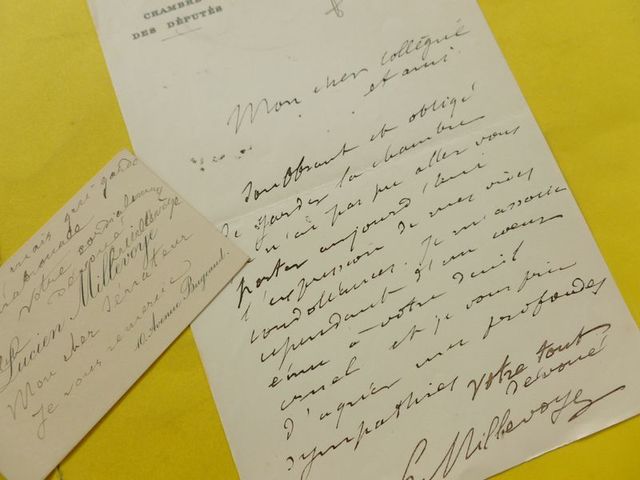 CHAMBRE
DES DÉPUTÉS
Mon cher collègue
et ami
Souffrant et obligé
de garder la chambre
je n'ai pas pu aller vous
porter aujourd'hui
l'expression de mes vives
condoléances. Je m'associe
cependant d'un cœur
ému à votre deuil
cruel et je vous prie
d'agréer mes profondes
sympathies votre tout
dévoué
L Millevoye
mais qui garde
votre cordialement
dévoué
LMillevoye
Lucien Millevoye
10. Avenue Bugeaud.
Mon cher Sénateur
Je vous remercie